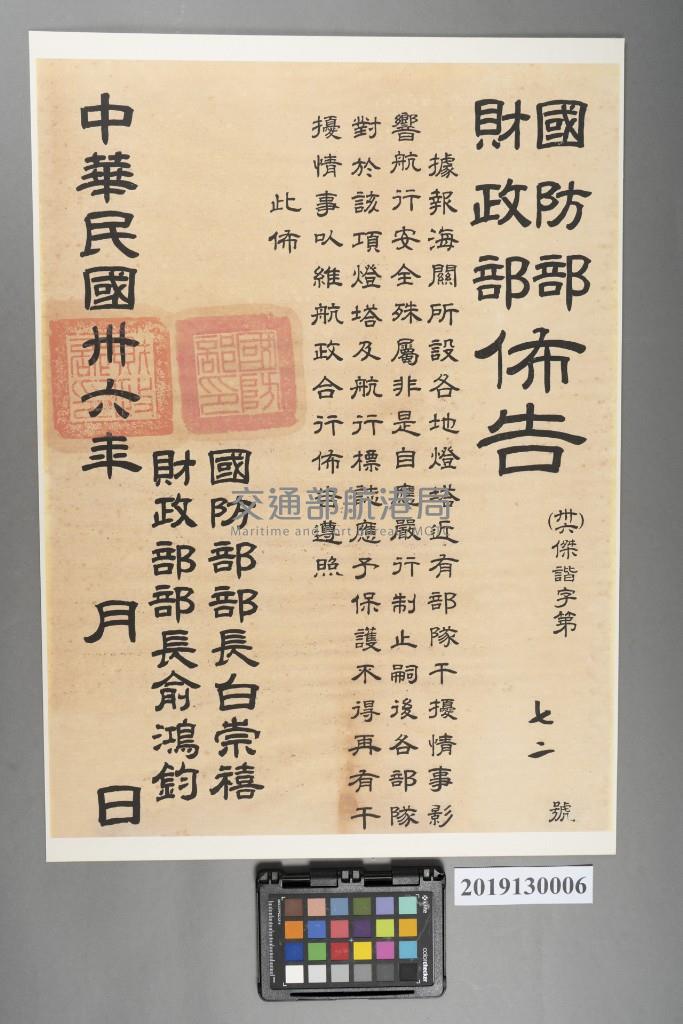 國防部
財政部
佈告
(卅六)傑諧字第 七二 號
據報海關所設各地燈塔近有部隊干擾情事影
響航行安全殊屬非是自嚴行制止嗣後各部隊
對於該項燈塔及航行標誌應予保護不得再有干
擾情事以維航政合行佈遵照
此佈
國防部部長白崇禧
財政部部長俞鴻鈞
中華民國卅六年 月 日
國防部印
財政部印
交通部航港局
Maritime and Port Bureau, MOTC
2019130006
colorchecker